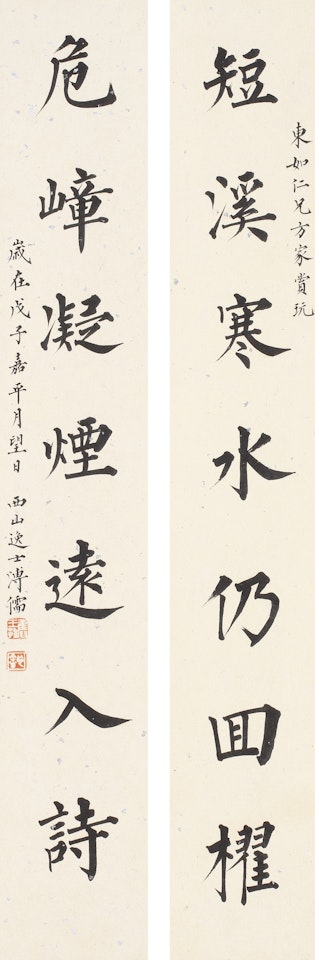 東如仁兄方家賞玩
短溪寒水仍回櫂
危嶂凝煙遠入詩
歲在戊子嘉平月望日 西山逸士溥儒